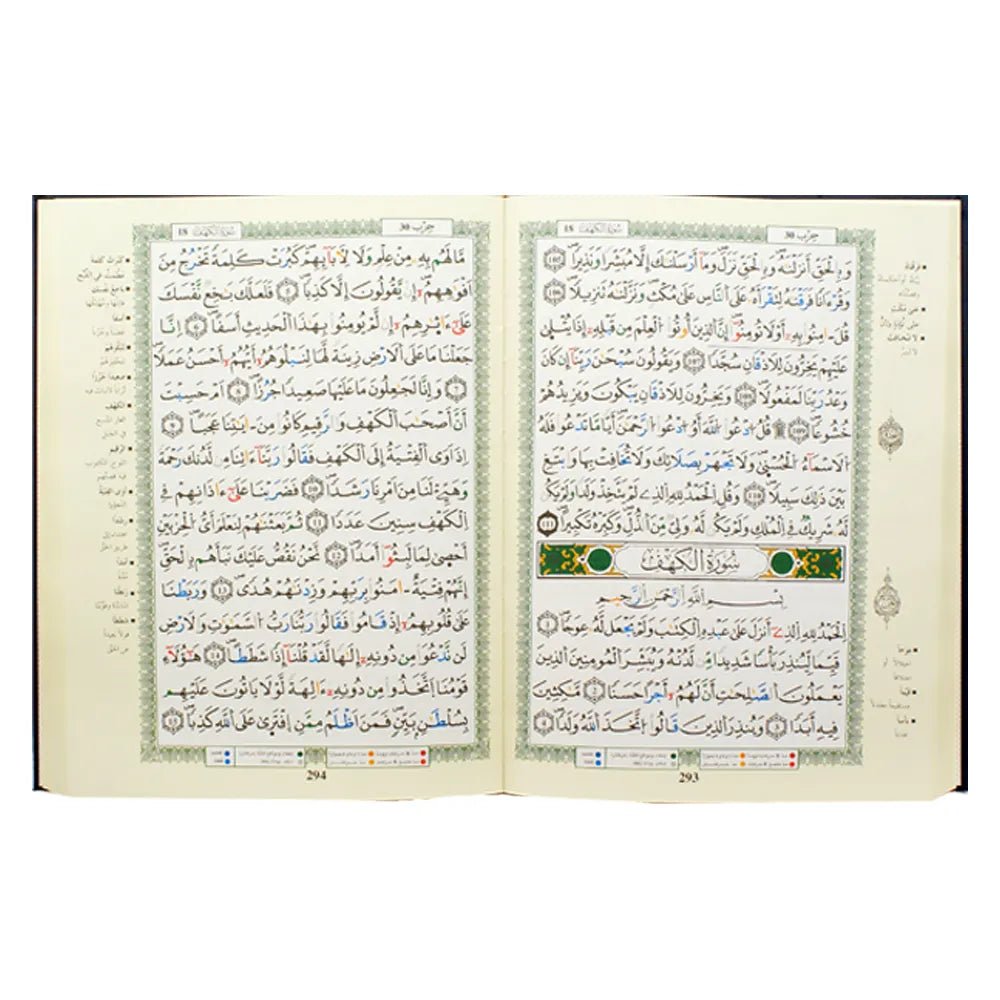 حزب 30
سورة الكهف 18
وبالحق أنزلنه وبالحق نزل وما أرسلنك إلا مبشرا ونذيرا 105
وقرءانا فرقنه لتقرأه على الناس على مكث ونزلنه تنزيلا 106
قل ءامنوا به أو لا تومنوا إن الذين أوتوا العلم من قبله إذا يتلى
عليهم يخرون للأذقان سجدا 107 ويقولون سبحن ربنا إن كان
وعد ربنا لمفعولا 108 ويخرون للأذقان يبكون ويزيدهم
خشوعا 109 قل ادعوا الله أو ادعوا الرحمن أيا ما تدعوا فله
الأسماء الحسنى ولا تجهر بصلاتك ولا تخافت بها وابتغ
بين ذلك سبيلا 110 وقل الحمد لله الذي لم يتخذ ولدا ولم يكن
له شريك في الملك ولم يكن له ولي من الذل وكبره تكبيرا 111
سورة الكهف
بسم الله الرحمن الرحيم
الحمد لله الذي أنزل على عبده الكتب ولم يجعل له عوجا 1
قيما لينذر بأسا شديدا من لدنه ويبشر المومنين الذين
يعملون الصلحت أن لهم أجرا حسنا 2 مكثين
فيه أبدا 3 وينذر الذين قالوا اتخذ الله ولدا 4
293
فرقناه
على مكث
لا تخافت
عوجا
قيما
بأسا
حزب 30
سورة الكهف 18
ما لهم به من علم ولا لأبائهم كبرت كلمة تخرج من
أفوههم إن يقولون إلا كذبا 5 فلعلك بخع نفسك
على ءاثرهم إن لم يومنوا بهذا الحديث أسفا 6 إنا
جعلنا ما على الأرض زينة لها لنبلوهم أيهم أحسن عملا
7 وإنا لجعلون ما عليها صعيدا جرزا 8 أم حسبت
أن أصحب الكهف والرقيم كانوا من ءايتنا عجبا 9
إذ اوى الفتية إلى الكهف فقالوا ربنا ءاتنا من لدنك رحمة
وهيئ لنا من أمرنا رشدا 10 فضربنا على ءاذانهم في
الكهف سنين عددا 11 ثم بعثنهم لنعلم أي الحزبين
أحصى لما لبثوا أمدا 12 نحن نقص عليك نبأهم بالحق
إنهم فتية ءامنوا بربهم وزدنهم هدى 13 وربطنا
على قلوبهم إذ قاموا فقالوا ربنا رب السموت والأرض
لن ندعوا من دونه إلها لقد قلنا إذا شططا 14 هؤلاء
قومنا اتخذوا من دونه ءالهة لولا ياتون عليهم
بسلطن بين فمن أظلم ممن افترى على الله كذبا 15
294
كبرت كلمة
باخع نفسك
أسفا
لنبلوهم
صعيدا جرزا
الكهف
الرقيم
أوى الفتية
رشدا
أمدا
ربطنا
شططا